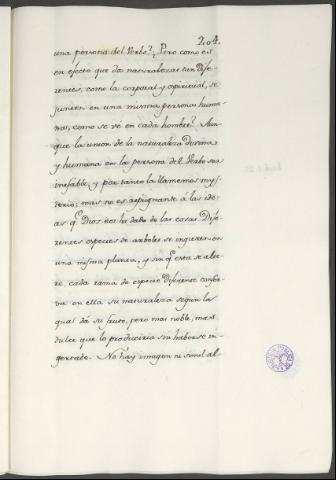 204.
una persona del Verbo? ¿Pero como es
en efecto que dos naturalezas tan dife-
rentes, como la corporal y espiritual, se
junten en una misma persona huma-
na, como se vé en cada hombre? Aun-
que la union de la naturaleza Divina
y humana en la persona del Verbo sea
inefable, y por tanto la llamemos mys-
terio; mas no es repugnante á las ide-
as q.e Dios nos ha dado de las cosas. Dife-
rentes especies de arboles se ingieren en
una misma planta, y sin q.e esta se alte-
re, cada rama de especie diferente conser-
va en ella su naturaleza segun la
qual dá su fruto, pero mas noble, mas
dulce que lo produciria sin haberse in-
gertado. No háy imagen ni simil al-